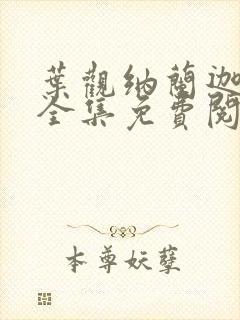 葉觀納蘭迦
全集免費閱
本尊妖孽